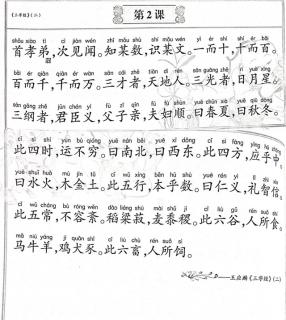 《三字经》(二)
第2课
shǒu xiào tì cì jiàn wén zhī mǒu shù shí mǒu wén yī ér shí shí ér bǎi
首孝弟,次见闻。知某数,识某文。一而十,十而百。
bǎi ér qiān qiān ér wàn sān cái zhě tiān dì rén sān guāng zhě rì yuè xīng
百而千,千而万。三才者,天地人。三光者,日月星。
sān gāng zhě jūn chén yì fù zǐ qīn fū fù shùn yuē chūn xià yuē qiū dōng
三纲者,君臣义,父子亲,夫妇顺。曰春夏,曰秋冬。
cǐ sì shí yùn bù qióng yuē nán běi yuē xī dōng cǐ sì fāng yìng hū zhōng
此四时,运不穷。曰南北,曰西东。此四方,应乎中。
yuē shuǐ huǒ mù jīn tǔ cǐ wǔ xíng běn hū shù yuē rén yì lǐ zhì xìn
曰水火,木金土。此五行,本乎数。曰仁义,礼智信。
cǐ wǔ cháng bù róng wěn dào liáng shū mài shǔ jì cǐ liù gǔ rén suǒ shí
此五常,不容紊。稻粱菽,麦黍稷。此六谷,人所食。
mǎ niú yáng jī quǎn shǐ cǐ liù chù rén suǒ sì
马牛羊,鸡犬豕。此六畜,人所饲。
——王应麟《三字经》(二)